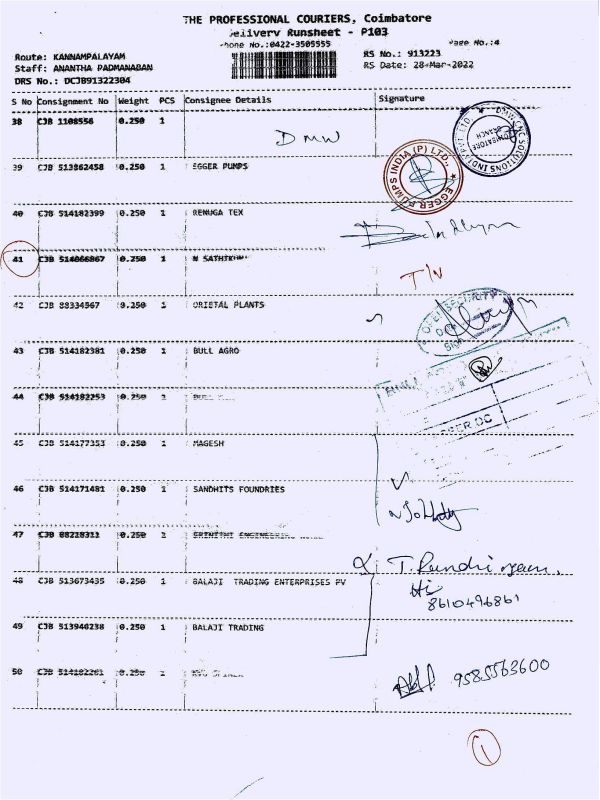 THE PROFESSIONAL COURIERS, Coimbatore
Delivery Runsheet - P103
Phone No.:0422-3505555
Page No.:4
Route: KANNAMPALAYAM
RS No.: 913223
Staff: ANANTHA PADMANABAN
RS Date: 28-Mar-2022
DRS No.: DCJB91322304
S No Consignment No Weight PCS Consignee Details Signature
38 CJB 1108556 0.250 1
DMW
39 CJB 513862458 0.250 1 EGGER PUMPS
EGGER PUMPS INDIA (P) LTD.,
DMW CNC SOLUTIONS INDIA PVT LTD
COIMBATORE BRANCH
40 CJB 514182399 0.250 1 RENUGA TEX
41 CJB 514066867 0.250 1
T/N
42 CJB 88334567 0.250 1 ORIETAL PLANTS
SECURITY
43 CJB 514182381 0.250 1 BULL AGRO
44 CJB 514182253 0.250 1 BULL
45 CJB 514177353 0.250 1 MAGESH
46 CJB 514171481 0.250 1 SANDHITS FOUNDRIES
47 CJB 88228311 0.250 1
48 CJB 513673435 0.250 1 BALAJI TRADING ENTERPRISES PV
8610496861
49 CJB 513940238 0.250 1 BALAJI TRADING
50 CJB 514182281 0.250 1
9585563600
1